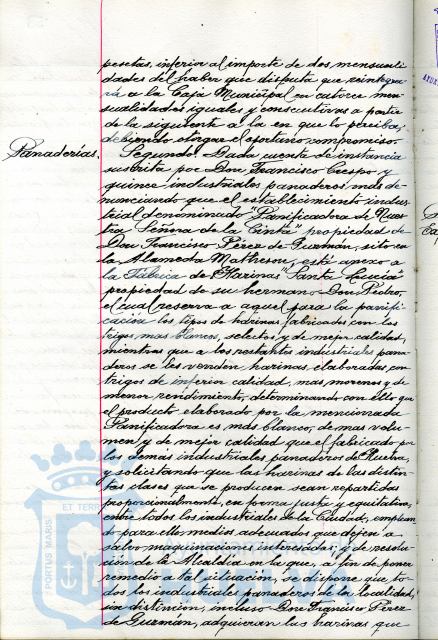 pesetas, inferior al importe de dos mensuali
dades del haber que disfruta que reintegra
rá a la Caja Municipal en catorce men
sualidades iguales y consecutivas a partir
de la siguiente a la en que lo perciba,
debiendo otorgar el oportuno compromiso.
Panaderías.
Segundo. Dada cuenta de instancia
suscrita por Don Francisco Crespo y
quince industriales panaderos mas de-
nunciando que el establecimiento indus
trial denominado "Panificadora de Nues
tra Señora de la Cinta" propiedad de
Don Francisco Pérez de Guzmán, sito en
la Alameda Matheson, está anexo a
la Fábrica de Harinas "Santa Lucía"
propiedad de su hermano Don Pedro,
el cual reserva a aquel para la panifi-
cación los tipos de harinas fabricados con los
trigos mas blancos, selectos y de mejor calidad,
mientras que a los restantes industriales pana
deros se les venden harinas, elaboradas con
trigos de inferior calidad, mas morenos y de
menor rendimiento, determinando con ello que
el producto elaborado por la mencionada
Panificadora es mas blanco, de mas volu-
men y de mejor calidad que el fabricado por
los demás industriales panaderos de Huelva,
y solicitando que las harinas de las distin-
tas clases que se producen sean repartidas
proporcionalmente, en forma justa y equitativa,
entre todos los industriales de la Ciudad, emplean
do para ello medios adecuados que dejen a
salvo maquinaciones; y de resolu
ción de la Alcaldía en la que, a fin de poner
remedio a tal situación, se dispone que to-
dos los industriales panaderos de la localidad,
sin distinción, incluso Don Francisco Pérez
de Guzmán, adquieran las harinas que
PORTUS MARIS
ET TERR